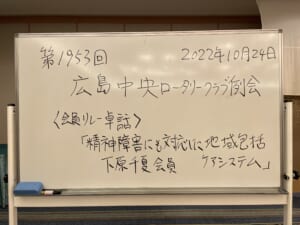 第1953回
2022年10月24日
広島中央ロータリークラブ例会
〈会員リレー卓話〉
「精神障害にも対応した地域包括
ケアシステム」
下原千夏会員